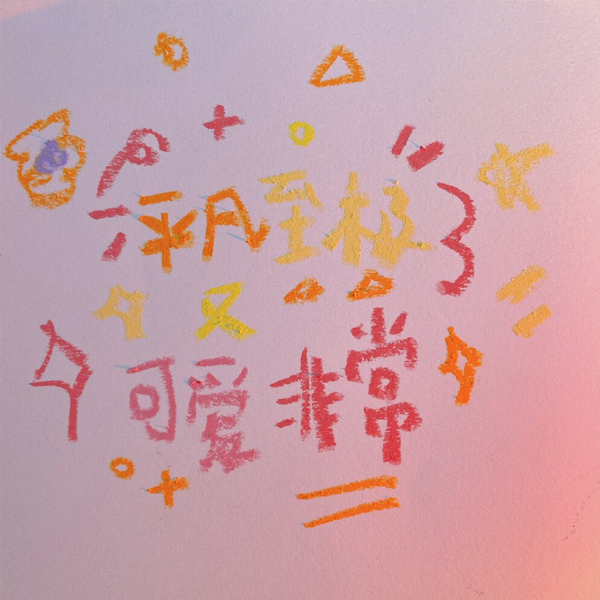 平凡至极
又
可爱非常